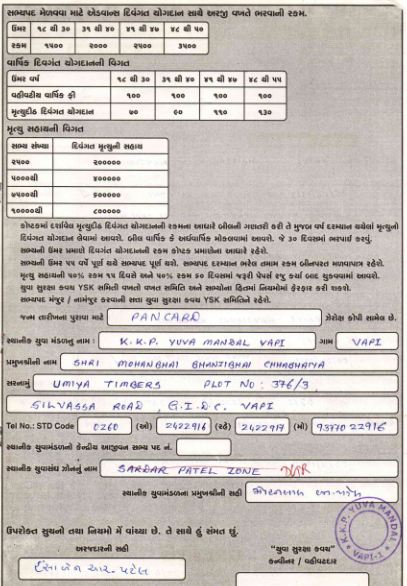 સભ્યપદ મેળવવા માટે એડવાન્સ દિવંગત યોગદાન સાથે અરજી વખતે ભરવાની રકમ.
ઉંમર ૧૮ થી ૩૦ ૩૧ થી ૪૦ ૪૧ થી ૪૭ ૪૮ થી ૫૦
રકમ ૧૫૦૦ ૨૦૦૦ ૨૫૦૦ ૩૫૦૦
વાર્ષિક દિવગંત યોગદાનની વિગત
ઉંમર વર્ષ ૧૮ થી ૩૦ ૩૧ થી ૪૦ ૪૧ થી ૪૭ ૪૮ થી ૫૫
વહીવટીય વાર્ષિક ફી ૧૦૦ ૧૦૦ ૧૦૦ ૧૦૦
મૃત્યુદીઠ દિવંગત યોગદાન ૭૦ ૯૦ ૧૧૦ ૧૩૦
મૃત્યુ સહાયની વિગત
સભ્ય સંખ્યા દિવંગત મૃત્યુની સહાય
૨૫૦૦ ૨૦૦૦૦૦
૫૦૦૦થી ૪૦૦૦૦૦
૭૫૦૦થી ૬૦૦૦૦૦
૧૦૦૦૦થી ૮૦૦૦૦૦
કોષ્ટકમાં દર્શાવેલ મૃત્યુદીઠ દિવંગત યોગદાનની રકમના આધારે બીલની ગણતરી કરી તે મુજબ વર્ષ દરમ્યાન થયેલાં મૃત્યુનો
દિવંગત યોગદાન લેવામાં આવશે. બીલ વાર્ષિક કે અર્ધવાર્ષિક મોકલવામાં આવશે. જે ૩૦ દિવસમાં ભરપાઈ કરવું.
સભ્યની ઉંમર પ્રમાણે દિવંગત યોગદાનની રકમ કોષ્ટક પ્રમાણેના આધારે રહેશે.
સભ્યની ઉંમર ૫૫ વર્ષ પૂર્ણ થયે સભ્યપદ પૂર્ણ થશે. સભ્યપદ દરમ્યાન ભરેલ તમામ રકમ બીનપરત મળવાપાત્ર રહેશે.
મૃત્યુ સહાયની ૫૦% રકમ ૧૫ દિવસે અને ૫૦% રકમ ૬૦ દિવસમાં જરૂરી પેપર્સ રજુ કર્યા બાદ ચુકવવામાં આવશે.
યુવા સુરક્ષા કવચ YSK સમિતી વખતો વખત સમિતિ અને સભ્યોના હિતમાં નિયમોમાં ફેરફાર કરી શકશે.
સભ્યપદ મંજુર / નામંજુર કરવાની સત્તા યુવા સુરક્ષા કવચ YSK સમિતિને રહેશે.
જન્મ તારીખના પુરાવા માટે PANCARD ઝેરોક્ષ કોપી સામેલ છે.
સ્થાનીક યુવા મંડળનું નામ : K.K.P. YUVA MANDAL VAPI ગામ VAPI
પ્રમુખશ્રીની નામ SHRI MOHANBHAI BHANJIBHAI CHHABHAIYA
સરનામું UMIYA TIMBERS PLOT NO: 376/3
SILVASSA ROAD, G.I.D.C. VAPI
Tel No.: STD Code 0260 (ઓ) 2422916 (રહે) 2422917 (મો) 93770 22916
સ્થાનીક યુવામંડળનો કેન્દ્રીય આજીવન સભ્ય પદ નં.
સ્થાનીક યુવાસંઘ ઝોનનું નામ SARDAR PATEL ZONE
સ્થાનીક યુવામંડળના પ્રમુખશ્રીની સહી
K.K.P. YUVA MANDAL VAPI-1
ઉપરોક્ત સુચનો તથા નિયમો મેં વાંચ્યા છે. તે સાથે હું સંમત છું.
અરજદારની સહી "યુવા સુરક્ષા કવચ"
કન્વીનર / વહીવટદાર